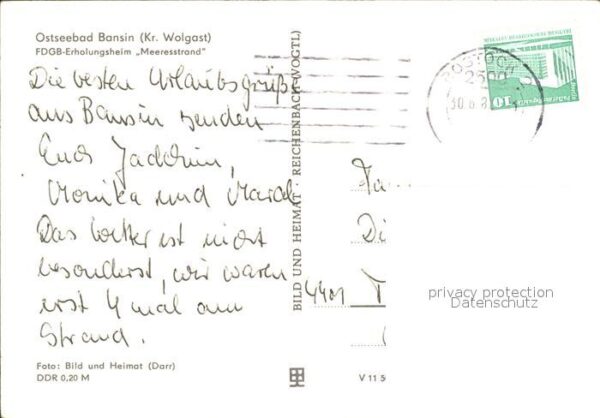 Ostseebad Bansin (Kr. Wolgast)
FDGB-Erholungsheim „Meeresstrand"
Die besten Urlaubsgrüße
aus Bansin senden
Euch Joachim,
Monika und
Das Wetter ist nicht
besonderst, wir waren
erst 4 mal am
Strand.
Foto: Bild und Heimat (Darr)
DDR 0,20 M
BILD UND HEIMAT REICHENBACH (VOGTL)
V 11 5
ROSTOCK
2500
30.6.8
10
Fa
Di
4401 T
privacy protection
Datenschutz